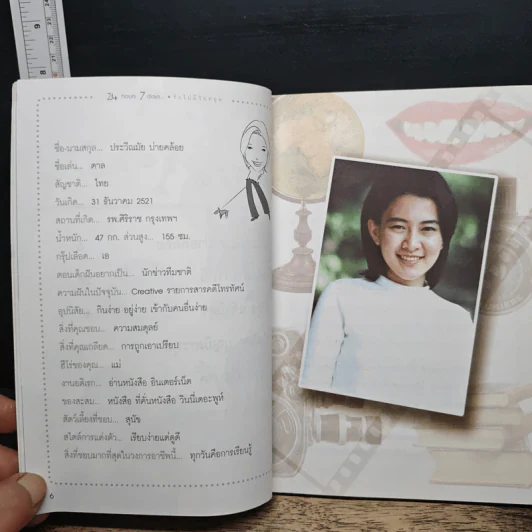 24 ก.พ. 7
ชื่อ-นามสกุล... ประวีณมัย บ่ายคล้อย
ชื่อเล่น... ตาล
สัญชาติ... ไทย
วันเกิด... 31 ธันวาคม 2521
สถานที่เกิด... รพ.ศิริราช กรุงเทพฯ
น้ำหนัก... 47 กก. ส่วนสูง... 155 ซม.
กรุ๊ปเลือด... เอ
ตอนเด็กฝันอยากเป็น... นักข่าวทีมชาติ
ความฝันในปัจจุบัน... Creative รายการสารคดีโทรทัศน์
อุปนิสัย... กินง่าย อยู่ง่าย เข้ากับคนอื่นง่าย
สิ่งที่คุณชอบ... ความสมดุลย์
สิ่งที่คุณเกลียด... การถูกเอาเปรียบ
ฮีโร่ของคุณ... แม่
งานอดิเรก... อ่านหนังสือ อินเตอร์เน็ต
ของสะสม... หนังสือ ที่คั่นหนังสือ วินนี่เดอะพูห์
สัตว์เลี้ยงที่ชอบ... สุนัข
สไตล์การแต่งตัว... เรียบง่ายแต่ดูดี
สิ่งที่ชอบมากที่สุดในวงการอาชีพนี้... ทุกวันคือการเรียนรู้
6